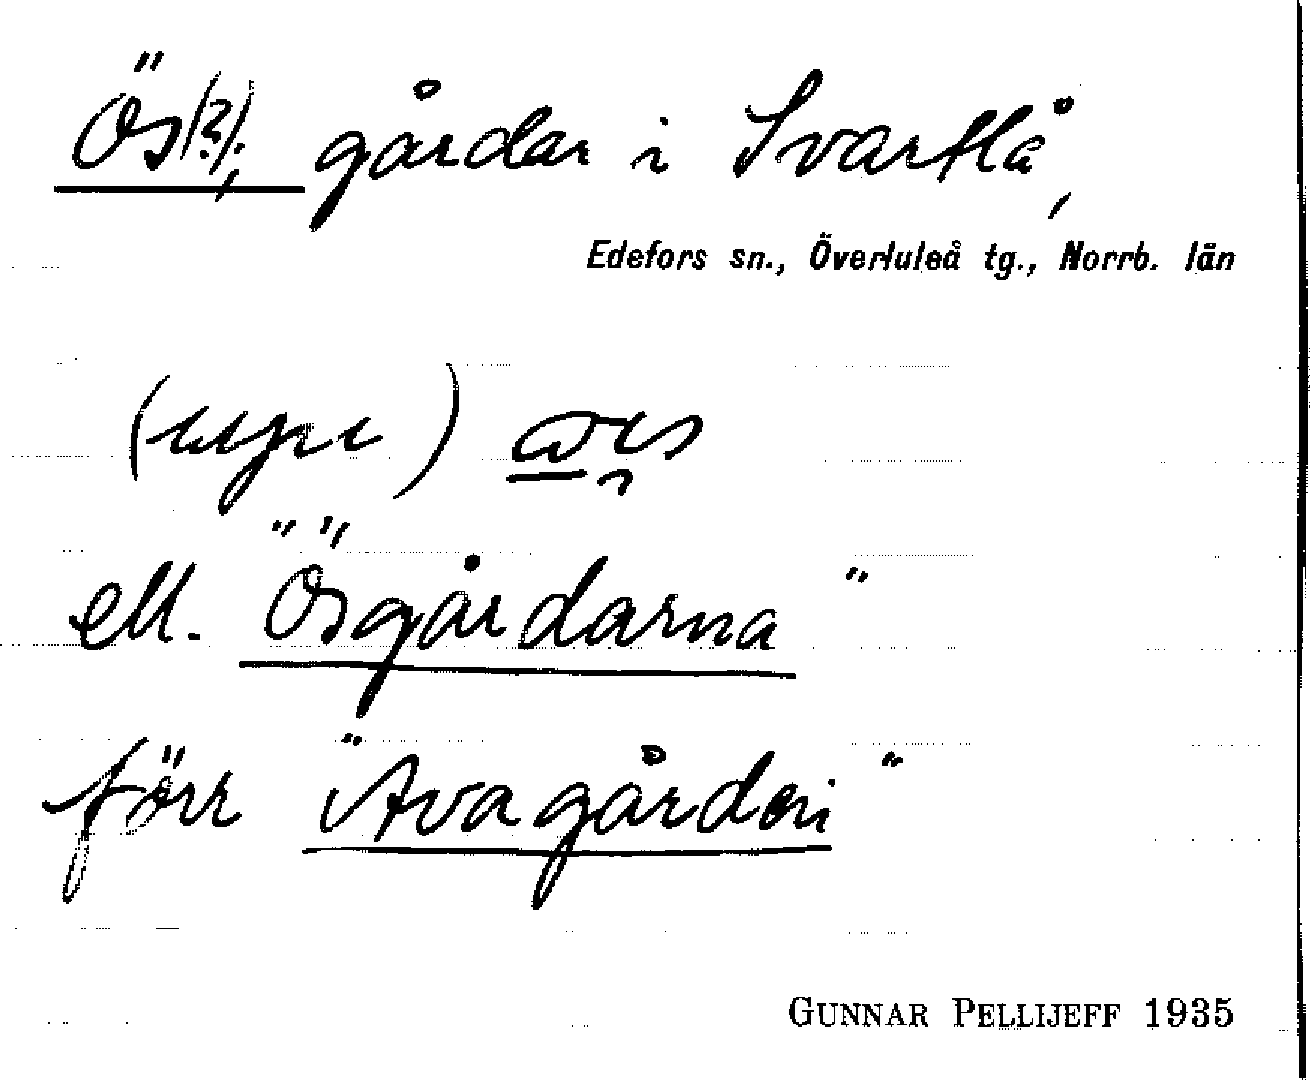 Ös(?), gårdar i Svartlå,
Edefors sn., Överluleå tg., Norrb. län
(uppe)
ell. "Ösgårdarna"
förr "Avagården"
GUNNAR PELLIJEFF 1935